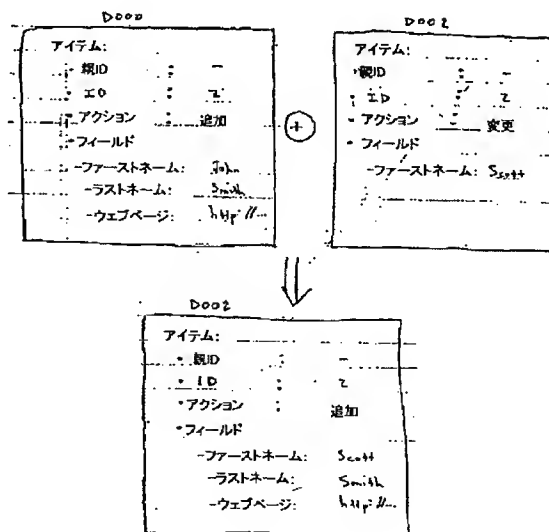 D000
アイテム:
・親ID : -
・ID : 2
・アクション : 追加
・フィールド
-ファーストネーム: John
-ラストネーム: Smith
-ウェブページ: http://...
+
D002
アイテム:
・親ID : -
・ID : 2
・アクション : 変更
・フィールド
-ファーストネーム: Scott
D002
アイテム:
・親ID : -
・ID : 2
・アクション : 追加
・フィールド
-ファーストネーム: Scott
-ラストネーム: Smith
-ウェブページ: http://...